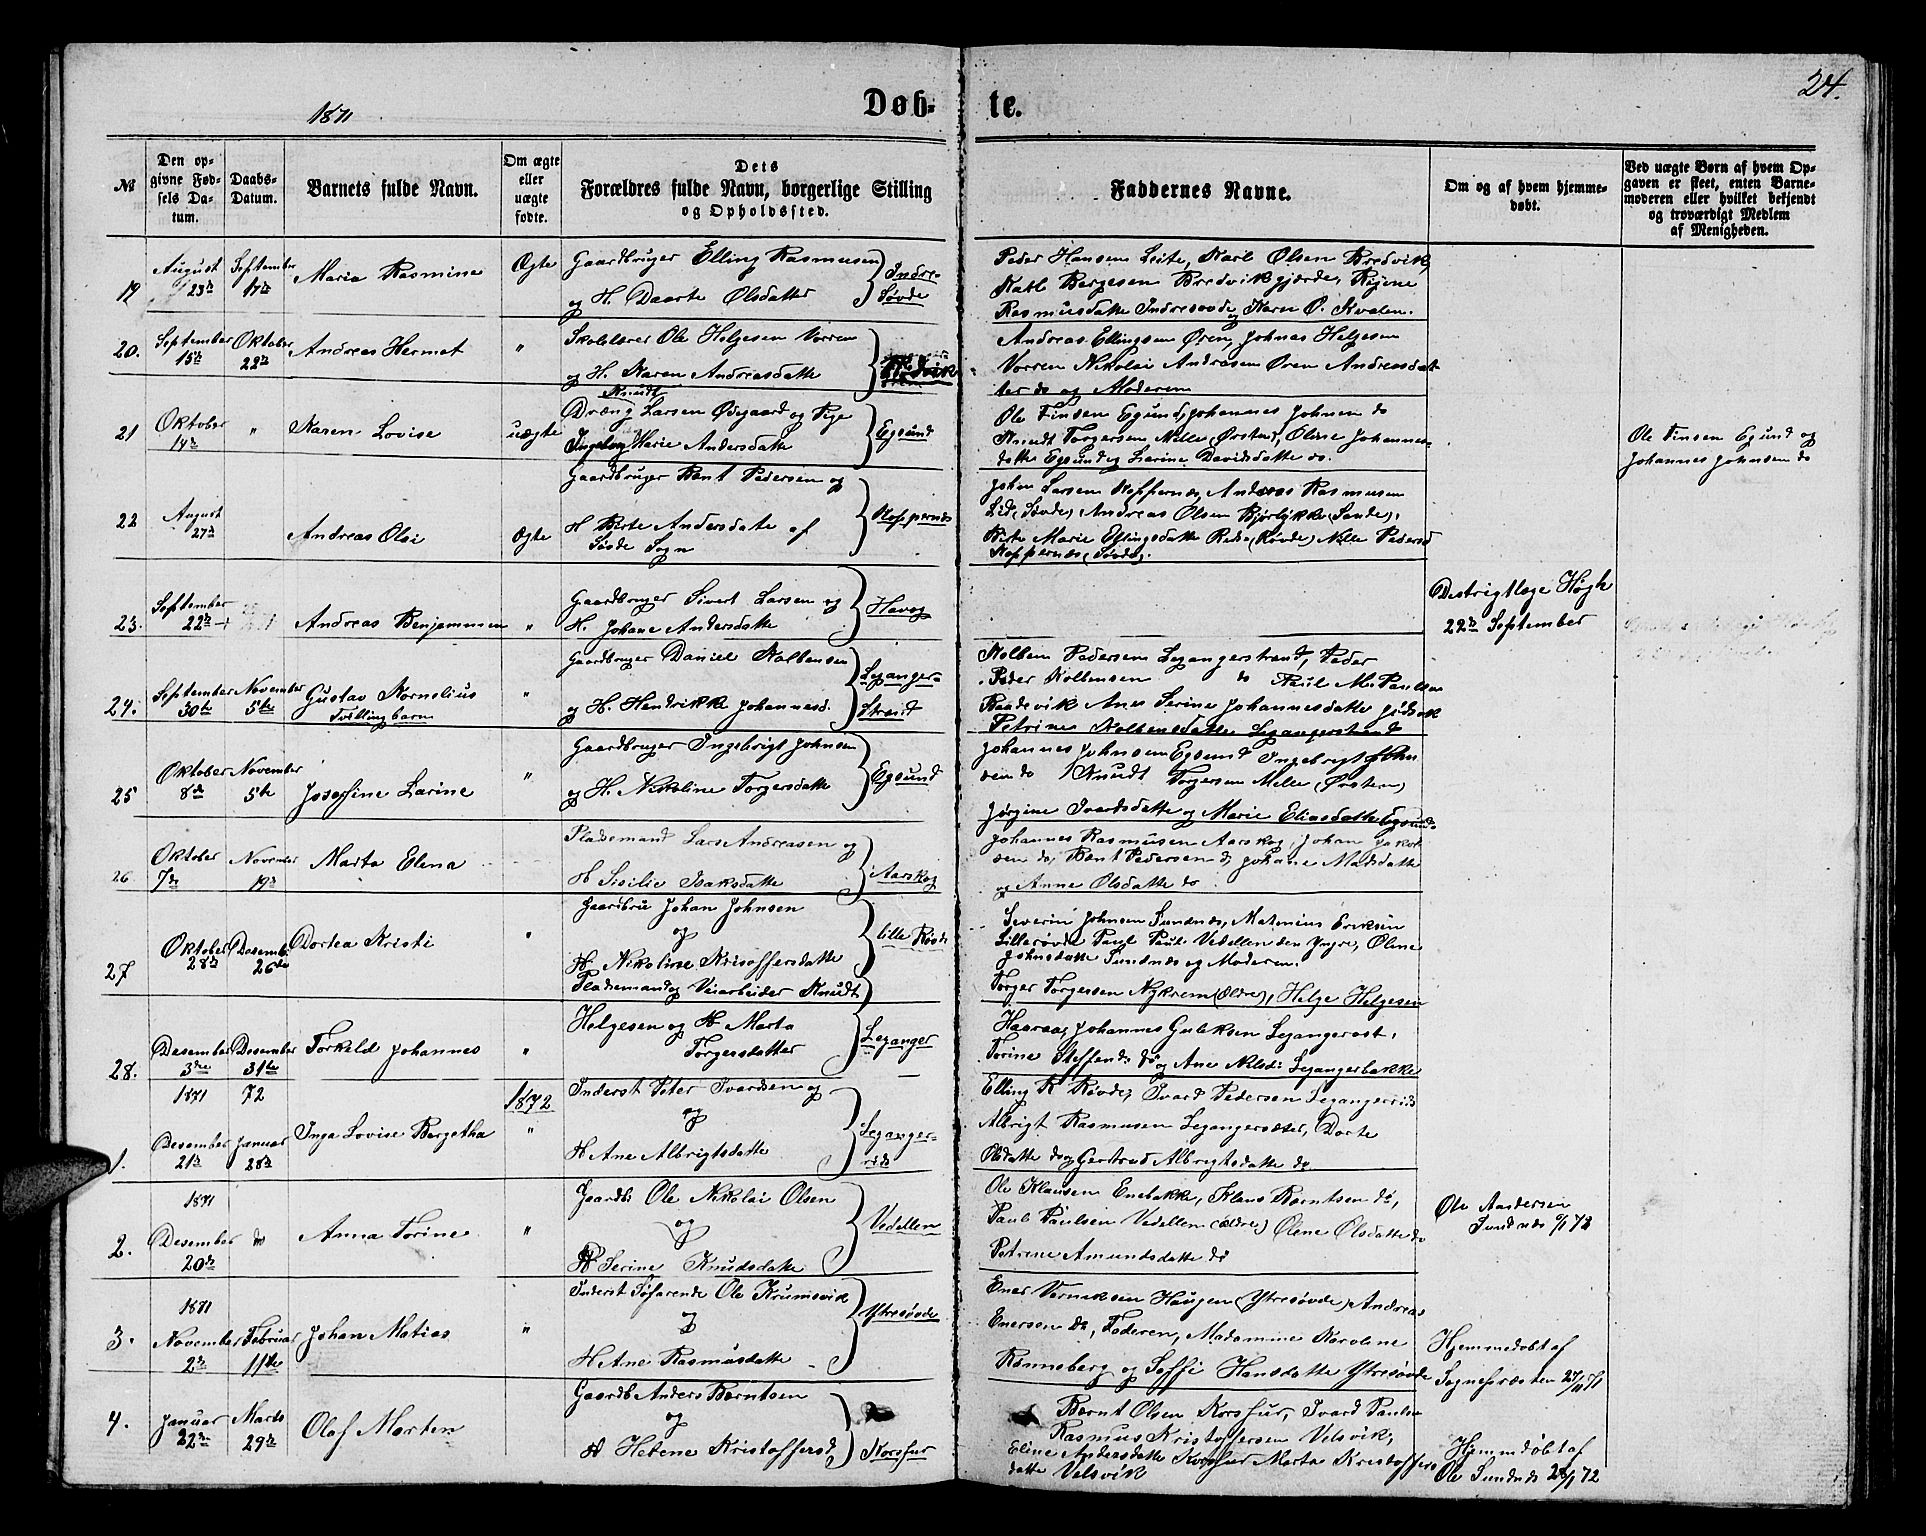 24.
1871
Døb-
te.
№
Den op-
givne Fød-
sels Da-
tum.
Daabs-
Datum.
Barnets fulde Navn.
Om ægte
eller
uægte
fødte.
Dets
Forældres fulde Navn, borgerlige Stilling
og Opholdssted.
Faddernes Navne.
Om og af hvem hjemme-
døbt.
Ved uægte Børn af hvem Op-
gaven er skeet, enten Barne-
moderen eller hvilket bekjendt
og troværdigt Medlem
af Menigheden.
19
August
23de
September
17de
Maria Rasmine
Ægte
Gaardbruger Elling Rasmusen
og H. Daarte Olsdatter
Indre-
Søvde
Peder Hansen Leite, Karl Olsen Bredvik,
Karl Børgesen Bredvikgjærde,
Rasmusdatte Indresøvde og Karn O. Kvalen.
20.
September
15de
Oktober
22de
Andreas Hermot
"
Skolelærer Ole Helgesen Vorren
og H. Karen Andreasdatte
Andreas Ellingsen Øren, Johnas Helgesen
Vorren Nikolai Andrasen Øren Andreasdat
ter do og Moderen
21
Oktober
14de
"
Karen Lovise
uægte
Knudt
Dræng Larsen Ødegaard og Pige
Ingeborg Marie Andersdatte
Egsund
Ole Finsen Egsund, Johannes Johnsen do
Knudt Torgersen Melle (Ørsten), Oline Johannes-
datte Egsund og Larine Davidsdatte do.
Ole Finsen Egsund og
Johannes Johnsen do
22
August
27de
Andreas Olai
Ægte
Gaardbruger Bent Pedersen og
H Birte Andersdatte af
Søvde Sogn
Koppernæs
Johan Larsen Koppernæs, Andreas Rasmusen
Lid (Søvde), Andreas Olsen Bjørlykke (Sande),
Birte Marie Ellingsdatte Redse (Røvde) Nille Pedersd
Koppernæs (Søvde).
23.
September
22de
Andreas Benjaminsen
"
Gaardbruger Sivert Larsen og
H. Johane Andersdatte
Havåg
Destrigtlæge Høgh
22de September
24.
September
30te
November
5te
Gustav Kornelius
Tvillingbarn
"
Gaardbruger Daniel Kolbensen
og H. Hendrikke Johannesd.
Leganger-
Strand
Kolben Pedersen Legangerstrand, Peder
Peder Kolbensen do Paul M. Paulsen
Baadsvik Ane Serine Johannesdatte
Petrine Kolbensdatte Legangerstrand
25
Oktober
8de
November
5te
Josefine Larine
"
Gaardbruger Ingebrigt Johnsen
og H. Nikoline Torgersdatte
Egsund
Johannes Johnsen Egsund Ingebrigt John
sen do Knudt Torgersen Melle (Ørsten)
Jørgine Ivardsdatte og Marie Eliasdatte Egsund.
26
Oktober
7de
November
19de
Marta Elena
Pladsemand Lars Andreasen og
H Sisilie Isaksdatte
Aarskog
Johannes Rasmusen Aarskog, Johan Jakob
sen do, Bent Pedersen do, Johane Madsdatte
og Anne Olsdatte do
27
Oktober
28de
Desemb.
26de
Dortea Kristi
"
Gaardbru Johan Johnsen
og
H. Nikoline Kristoffersdatte
lille Røvde
Severin Johnsen Sundnæs, Matmius Eriksen
Lillerøvde Paul Pauls Vedellen den Yngre, Oline
Johnsdatte Sundnæs og Moderen.
28.
Desember
3die
Desember
31te
Torkild Johannes
"
Pladsemand og Veiarbeider Knudt
Helgesen og H Marta
Torgersdatter
Leganger
Torger Torgersen Nykrem (Eldre), Helge Helgesen
Johannes Guleksen Legangerøst,
Torine Steffend. do og Ane Nilsd. Legangerbakke
1871
72
1872
1.
Desember
21de
Januar
28de
Inga Lovise Bergetha
"
Inderst Peter Ivardsen og
og
H Ane Albrigtsdatte
Leganger-
Elling R Røvde, Ivard Pedersen
Albrigt Rasmusen Legangersæter, Dorte
Olsdatte do og Gertrud Albrigtsdatte do
1871
2.
Desember
20de
do
Anna Torine
"
Gaardb. Ole Nikolai Olsen
og
H Serine Knudsdatte
Vedellen
Ole Klausen Enebakke, Klaus Berntsen do,
Paul Paulsen Vedellen (ældre) Oline Olsdatte do
Petrine Amundsdatte do
Ole Andersen
Sundnæs
1871
3.
November
2de
Februar
11te
Johan Matias
"
Inderst Søfarende Ole Krumsvik
og
H Ane Rasmusdatte
Ytresøvde
Ener Verniksen Haugen (Ytresøvde) Andreas
Enersen do, Faderen, Madamine Karoline
Rønneberg og Soffi Hansdatte Ytresøvde
Hjemmedøbt af
Sognepræsten 27/11 71
4.
Januar
22de
Marts
29de
Olaf Morten
Gaardb Anders Berntsen
og
H Helene Kristoffersd,
Korsfur
Bernt Olsen Korsfur, Ivard Paulsen
Rasmus Kristoffersen Velsvik,
Eline Andersdatte Korsfur Marta Kristoffers
datte Velsvik
Hjemmdøbt af
Ole Sundnæs 28/1 72